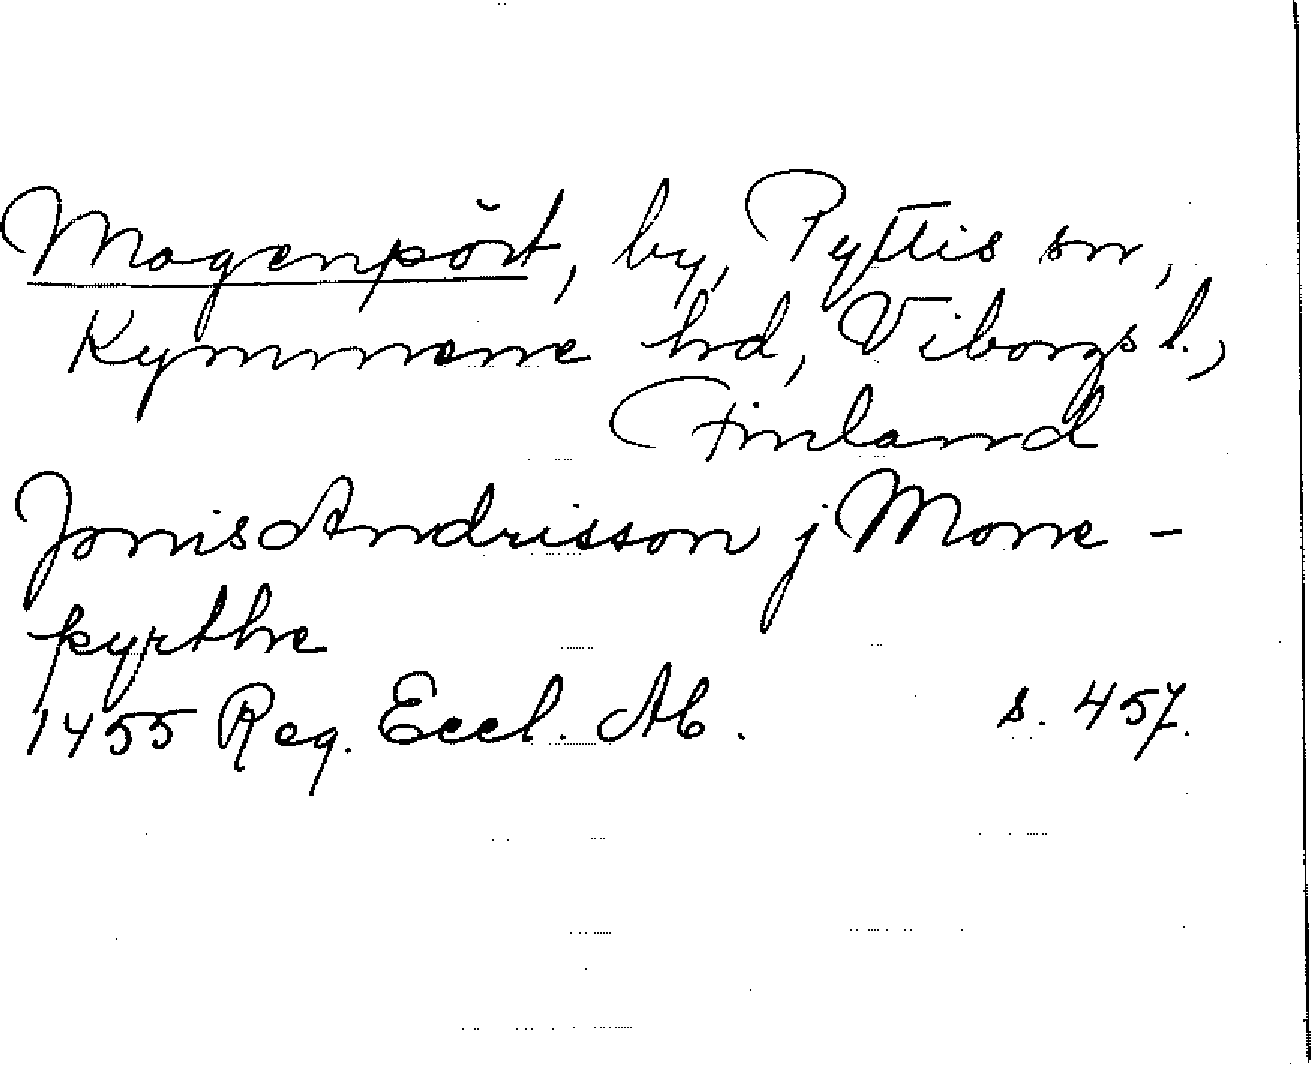 Mogenpört, by, Pyttis sn,
Kymmene hd, Viborgs l.,
Finland
Jönis Andrisson j Mone-
pyrthe
1455 Reg. Eccl. Ab. s. 457.